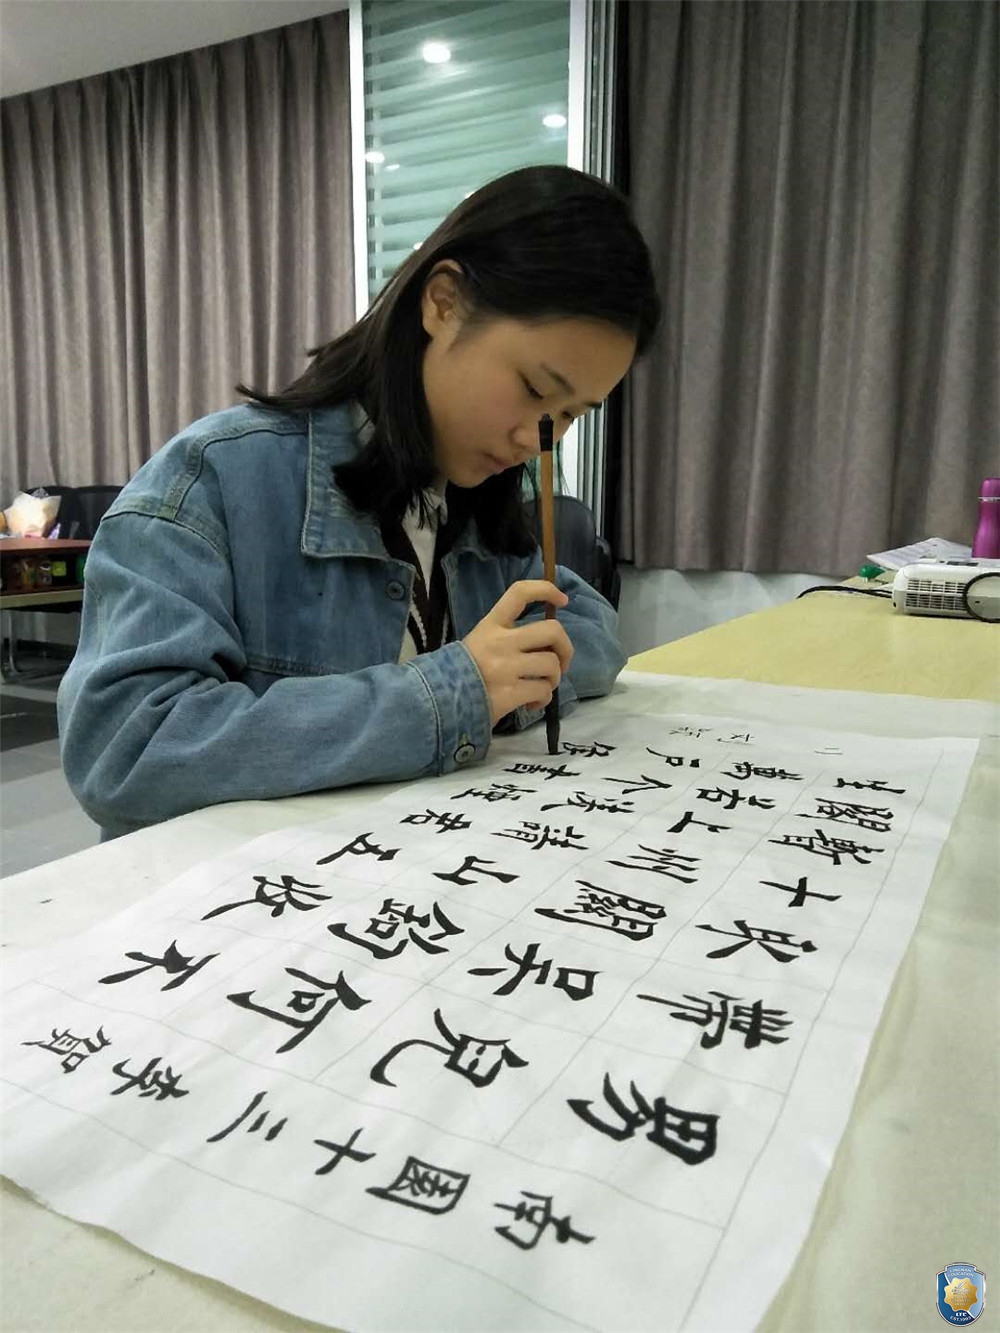 南園十三李賀
男兒何不
帶吳鉤收
取關山五
十州請君
暫上凌煙
閣若个書
生萬戶侯